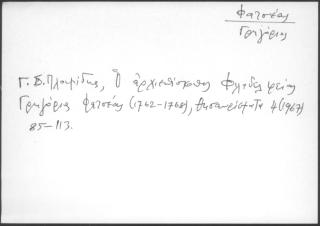 Φατσέας
Γρηγόριος
Γ. Σ. Πλουμίδης, Ὁ ἀρχιεπίσκοπος Φιλαδελφείας
Γρηγόριος Φατσέας (1762-1768), Θησαυρίσματα 4 (1967)
85-113.